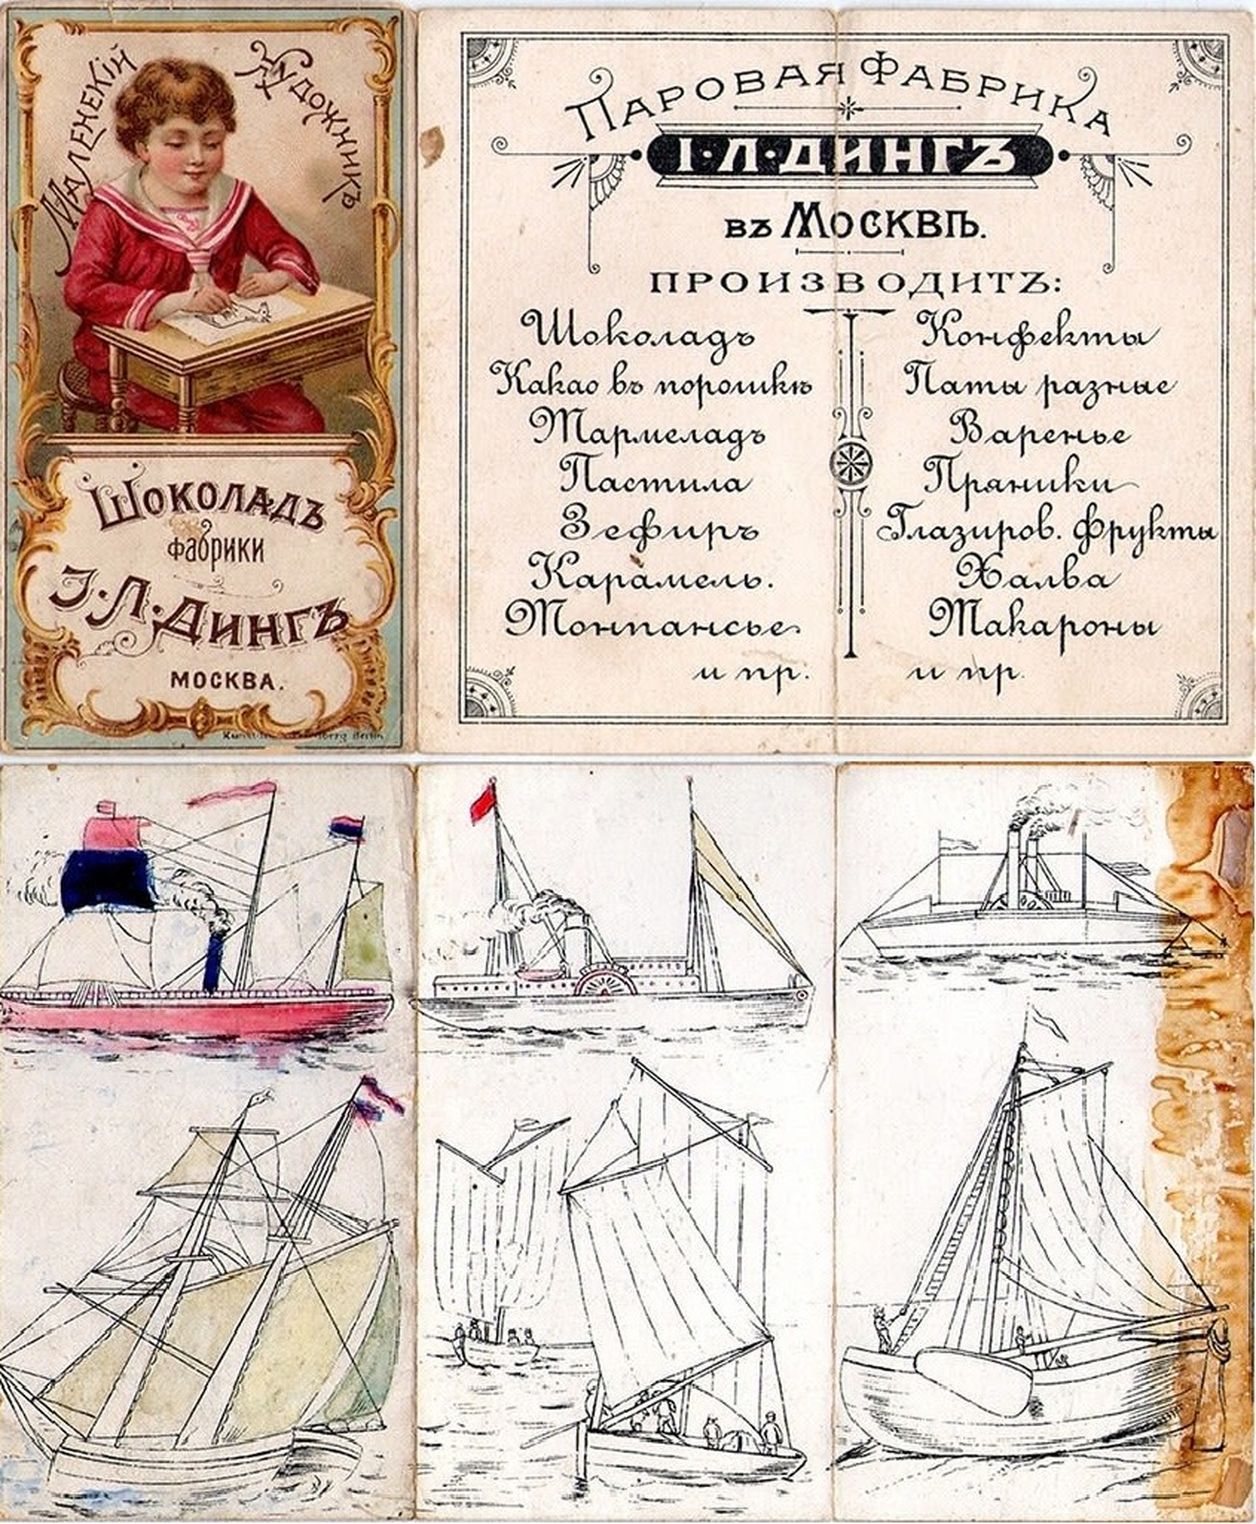 Маленекій Художникъ
Шоколадъ
фабрики
І. Л. Дингъ
МОСКВА.
Berlin
Паровая Фабрика
І·Л·ДИНГЪ
въ Москвѣ.
ПРОИЗВОДИТЪ:
Шоколадъ
Какао въ порошкѣ
Мармеладъ
Пастила
Зефиръ
Карамель.
Монпансье
и пр.
Конфекты
Паты разные
Варенье
Пряники
Глазиров. Фрукты
Халва
Макароны
и пр.